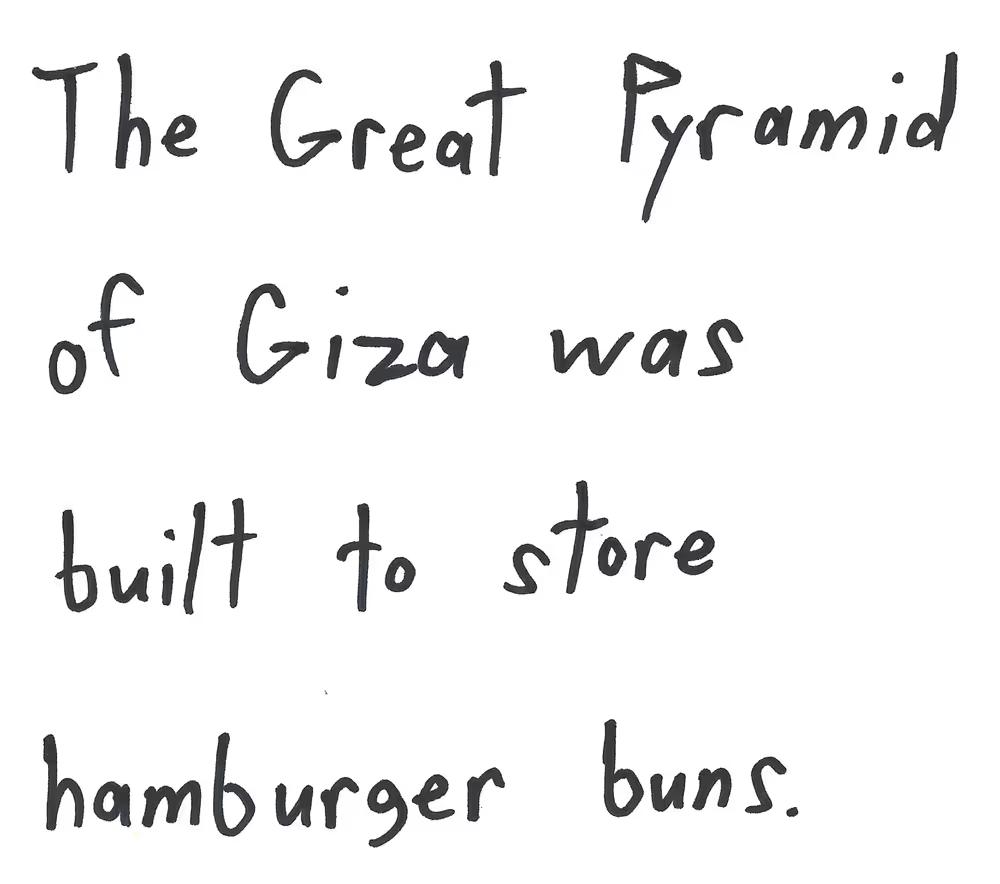 The Great Pyramid
of Giza was
built to store
hamburger buns.